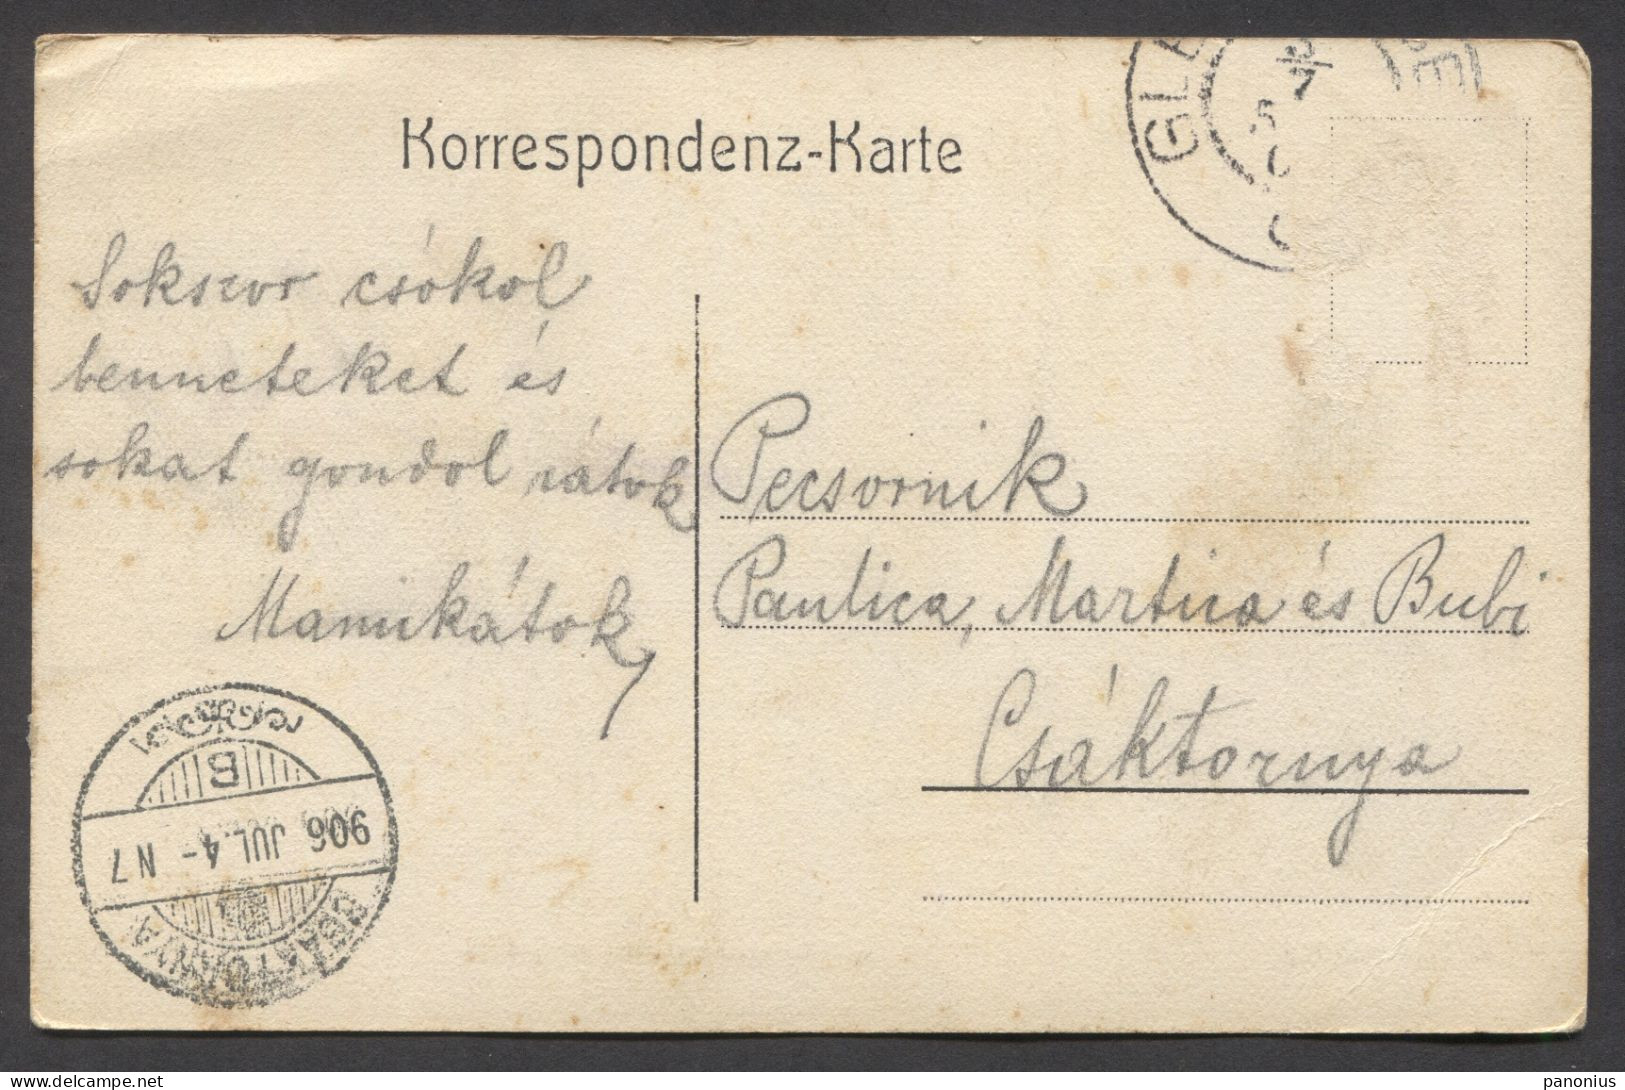 Korrespondenz-Karte
Sokszor csókol
benneteket és
sokat gondol rátok
Mamikátok
Pecsornik
Paulica, Martica és Bubi
Csáktornya
B
906 JUL. 4 - N 7
CSÁKTORNYA
GLE
5
7
delcampe.net
panonius